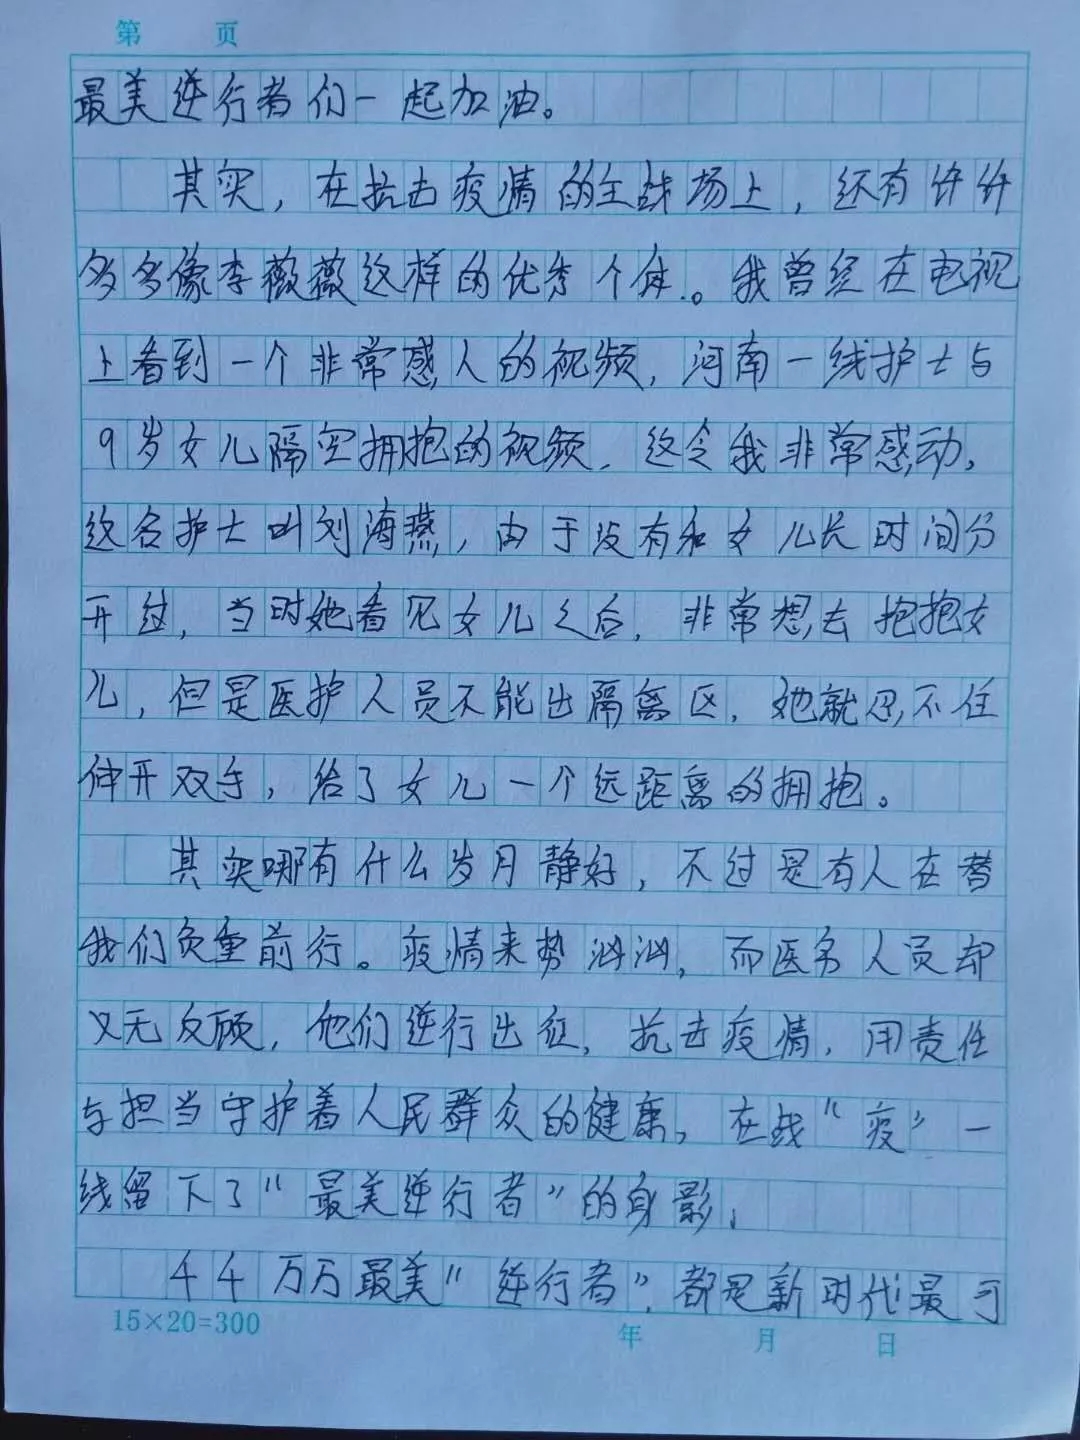 第 页
最美逆行者们一起加油。
其实，在抗击疫情的主战场上，还有许许
多多像李薇薇这样的优秀个体。我曾经在电视
上看到一个非常感人的视频，河南一线护士与
9岁女儿隔空拥抱的视频，这令我非常感动。
这名护士叫刘海燕，由于没有和女儿长时间分
开过，当时她看见女儿之后，非常想去抱抱女
儿，但是医护人员不能出隔离区，她就忍不住
伸开双手，给了女儿一个远距离的拥抱。
其实哪有什么岁月静好，不过是有人在替
我们负重前行。疫情来势汹汹，而医务人员却
义无反顾，他们逆行出征，抗击疫情，用责任
与担当守护着人民群众的健康，在战“疫”一
线留下了“最美逆行者”的身影。
千千万万最美“逆行者”，都是新时代最可
15×20=300 年 月 日